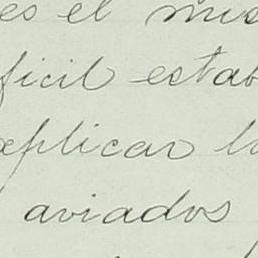 es el mis
ficil estab
xplicar l
aviados